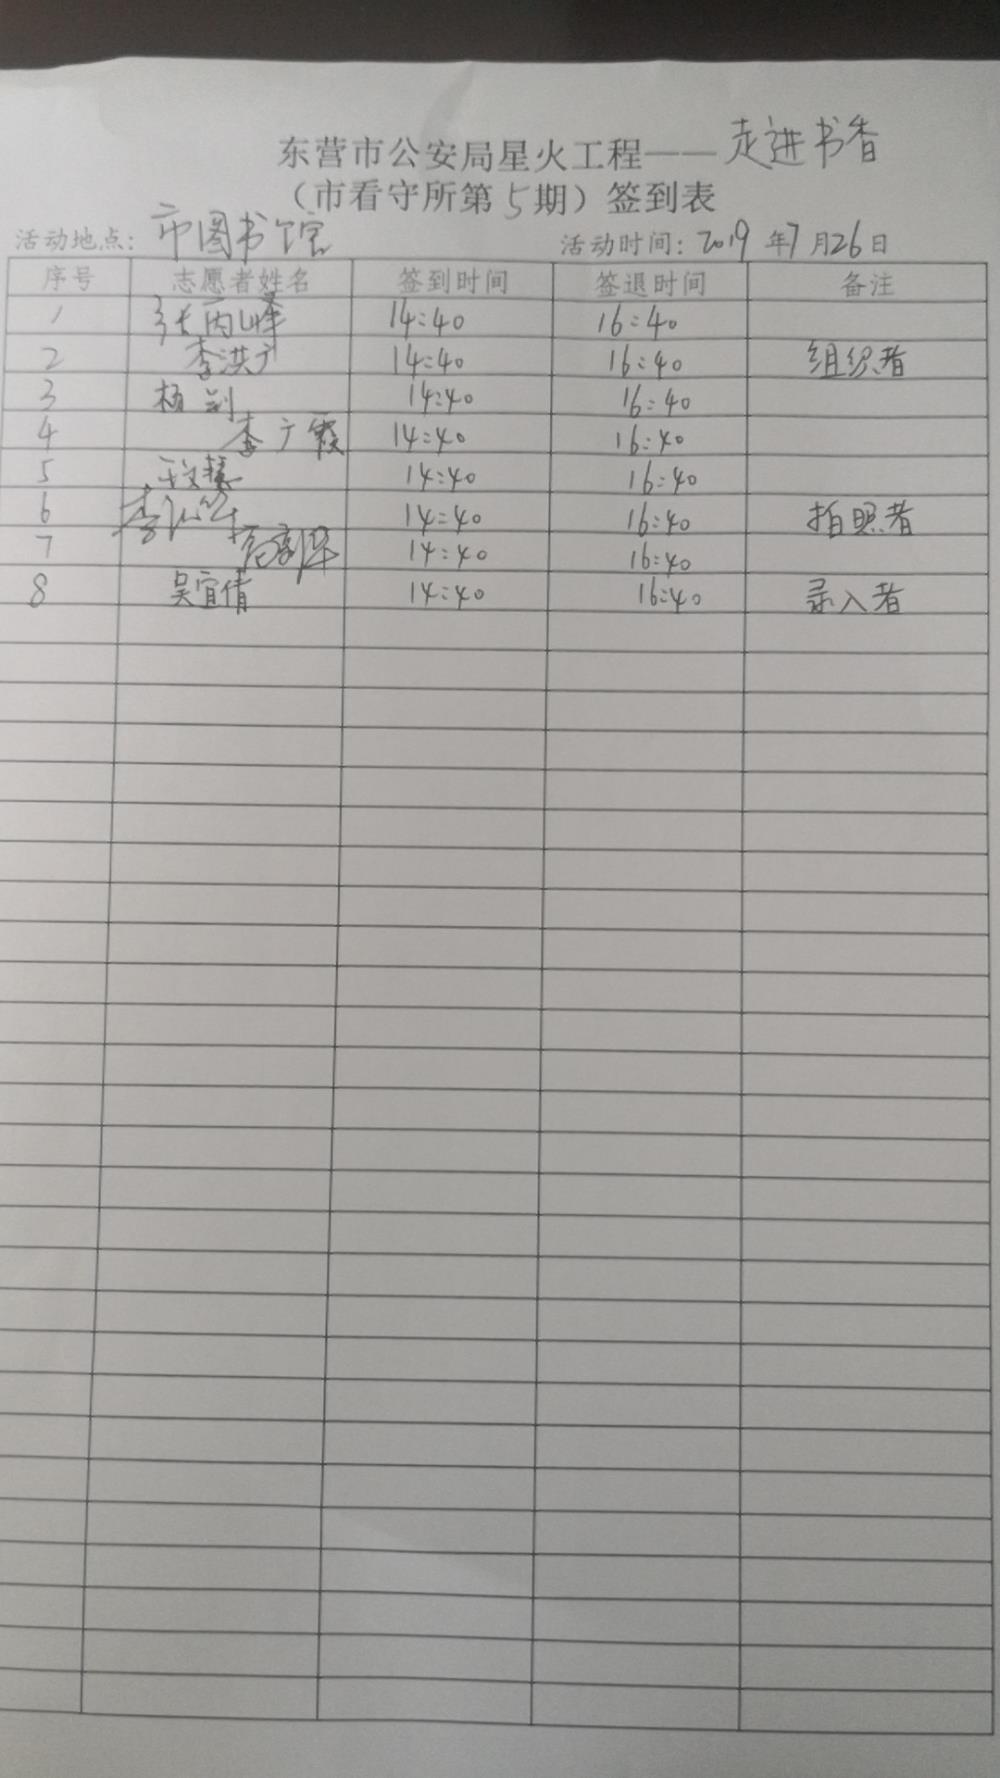 东营市公安局星火工程——走进书香
（市看守所第5期）签到表
活动地点：市图书馆 活动时间：2019年7月26日
序号 志愿者姓名 签到时间 签退时间 备注
1 张丙峰 14:40 16:40
2 李洪广 14:40 16:40 组织者
3 杨剑 14:40 16:40
4 李广霞 14:40 16:40
5 14:40 16:40
6 李 14:40 16:40 拍照者
7 14:40 16:40
8 吴宜倩 14:40 16:40 录入者